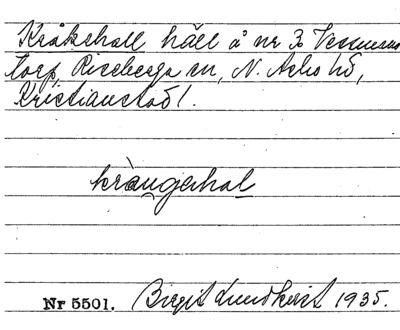 Kråkehall häll å nr 3 Vemmens
torp, Riseberga sn, N. Asbo hd,
Kristianstad l.
krångerhal
Nr 5501. Birgit Lundkvist 1935.